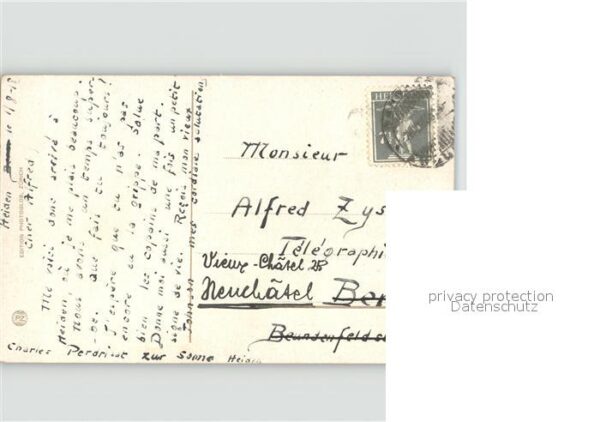 Heiden le 1/8-18
Cher Alfred!
Me voici donc arrivé à
Heiden, où je me plais beaucoup.
Nous avons un temps super-
be. Que fais tu toujours!
J'espère que tu n'as pas
encore eu la grippe. Salue
bien les copains de ma part.
Donne moi aussi une fois un petit
signe de vie. Reçois mon vieux
mes cordiale salutation
Charles Perdrisat zur Sonne Heiden
EDITION PHOTOGLOB, ZÜRICH
HELV
Monsieur
Alfred Zys
Télégraphi
Vieux-Châtel 25
Neuchâtel Ber
Beundenfeld
privacy protection
Datenschutz